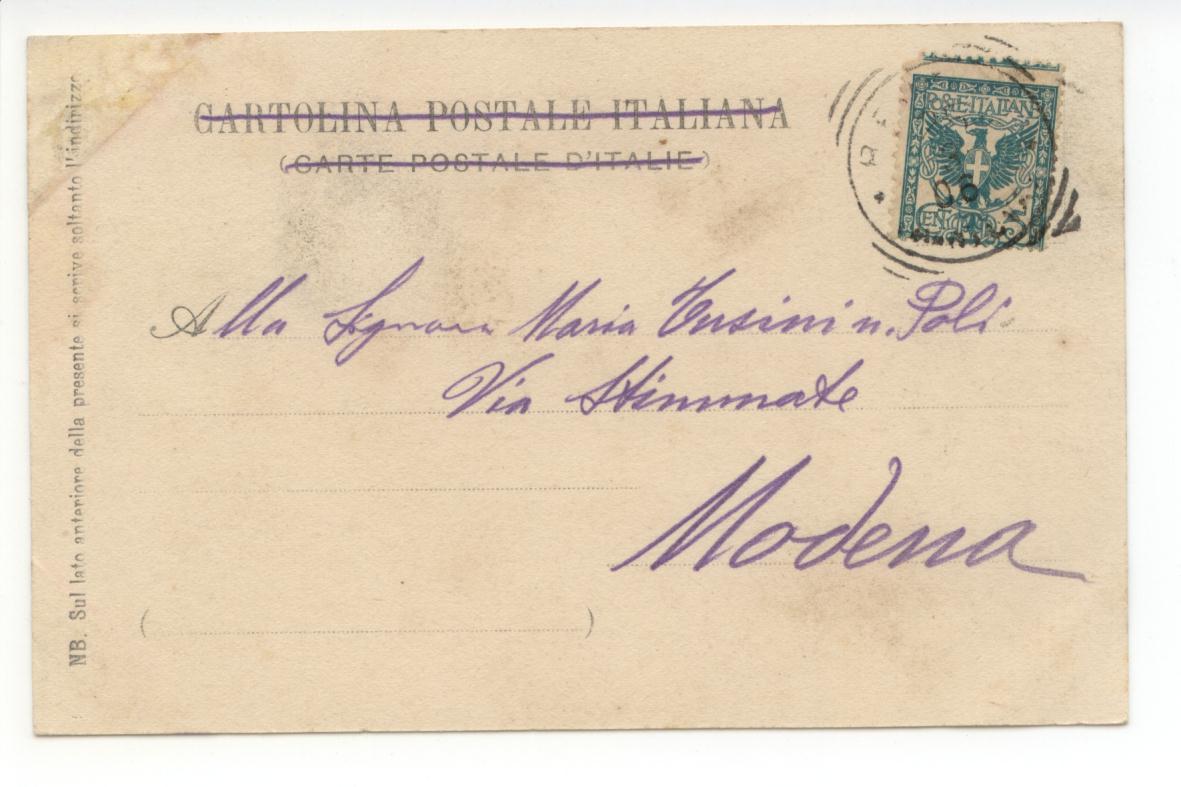 CARTOLINA POSTALE ITALIANA
(CARTE POSTALE D'ITALIE)
POSTE·ITALIANE
06
Alla Signora Maria Tusini n. Poli
Via Stimmate
Modena
NB. Sul lato anteriore della presente si scrive soltanto l'indirizzo